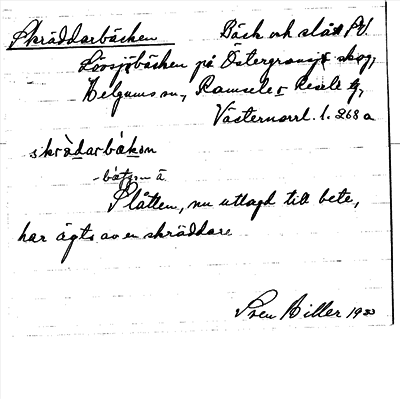 Skräddarbäcken Bäck och slåt PV.
Lövsjöbäcken på Östergransjö skog,
Helgums sn, Ramsele o Resele tg,
Västernorrl. l. 268 a
skrädarbäkən
Slåtten, nu uttagd till bete,
har ägts av en skräddare
Sven Hiller 1930